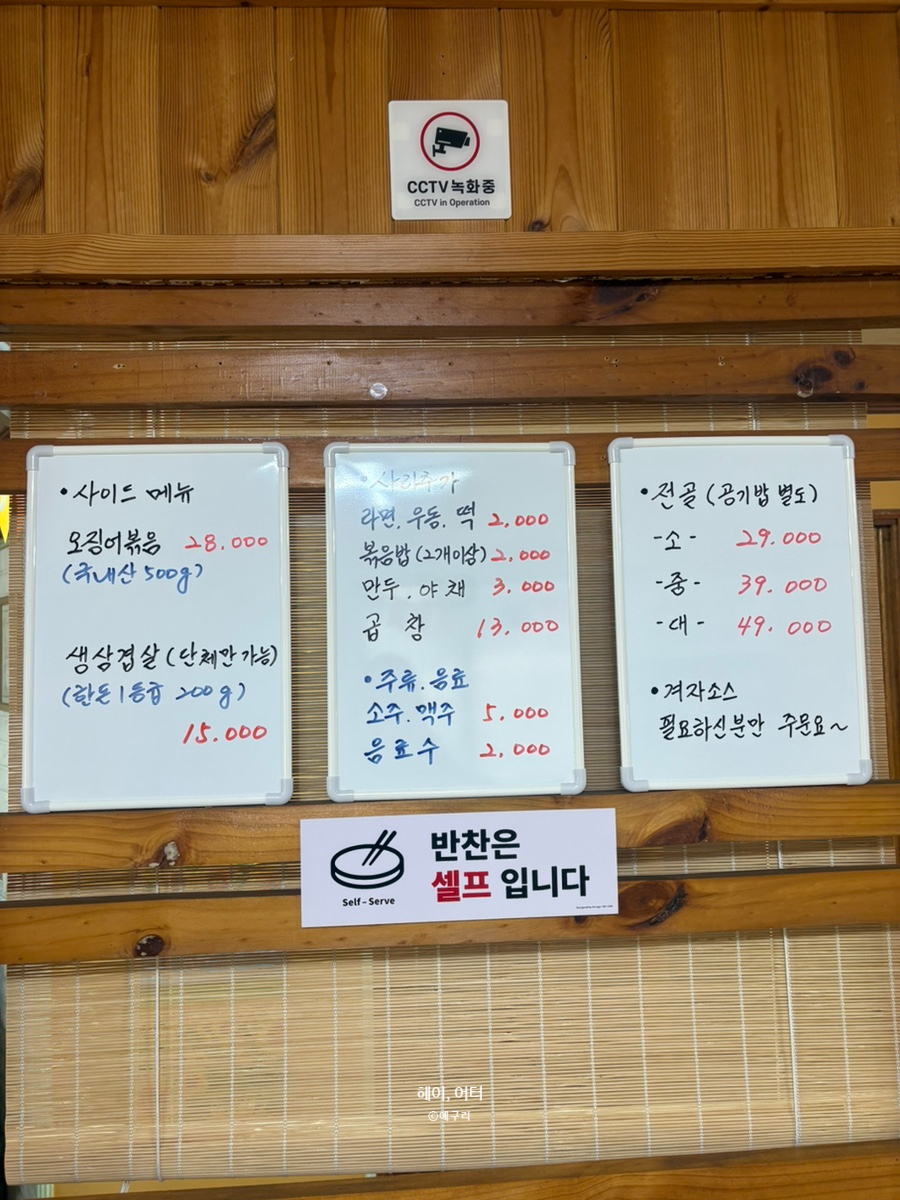 CCTV 녹화중
CCTV in Operation
• 사이드 메뉴
오징어볶음 28.000
(국내산 500g)
생삼겹살 (단체만 가능)
(한돈 1등급 200g)
15.000
• 사리추가
라면. 우동. 떡 2,000
볶음밥 (2개이상) 2,000
만두. 야채 3.000
곱창 13.000
• 주류. 음료
소주. 맥주 5.000
음료수 2,000
• 전골 (공기밥 별도)
- 소 - 29.000
- 중 - 39.000
- 대 - 49.000
• 겨자소스
필요하신분만 주문요~
Self-Serve
반찬은
셀프 입니다
헤이, 어터
©에구리